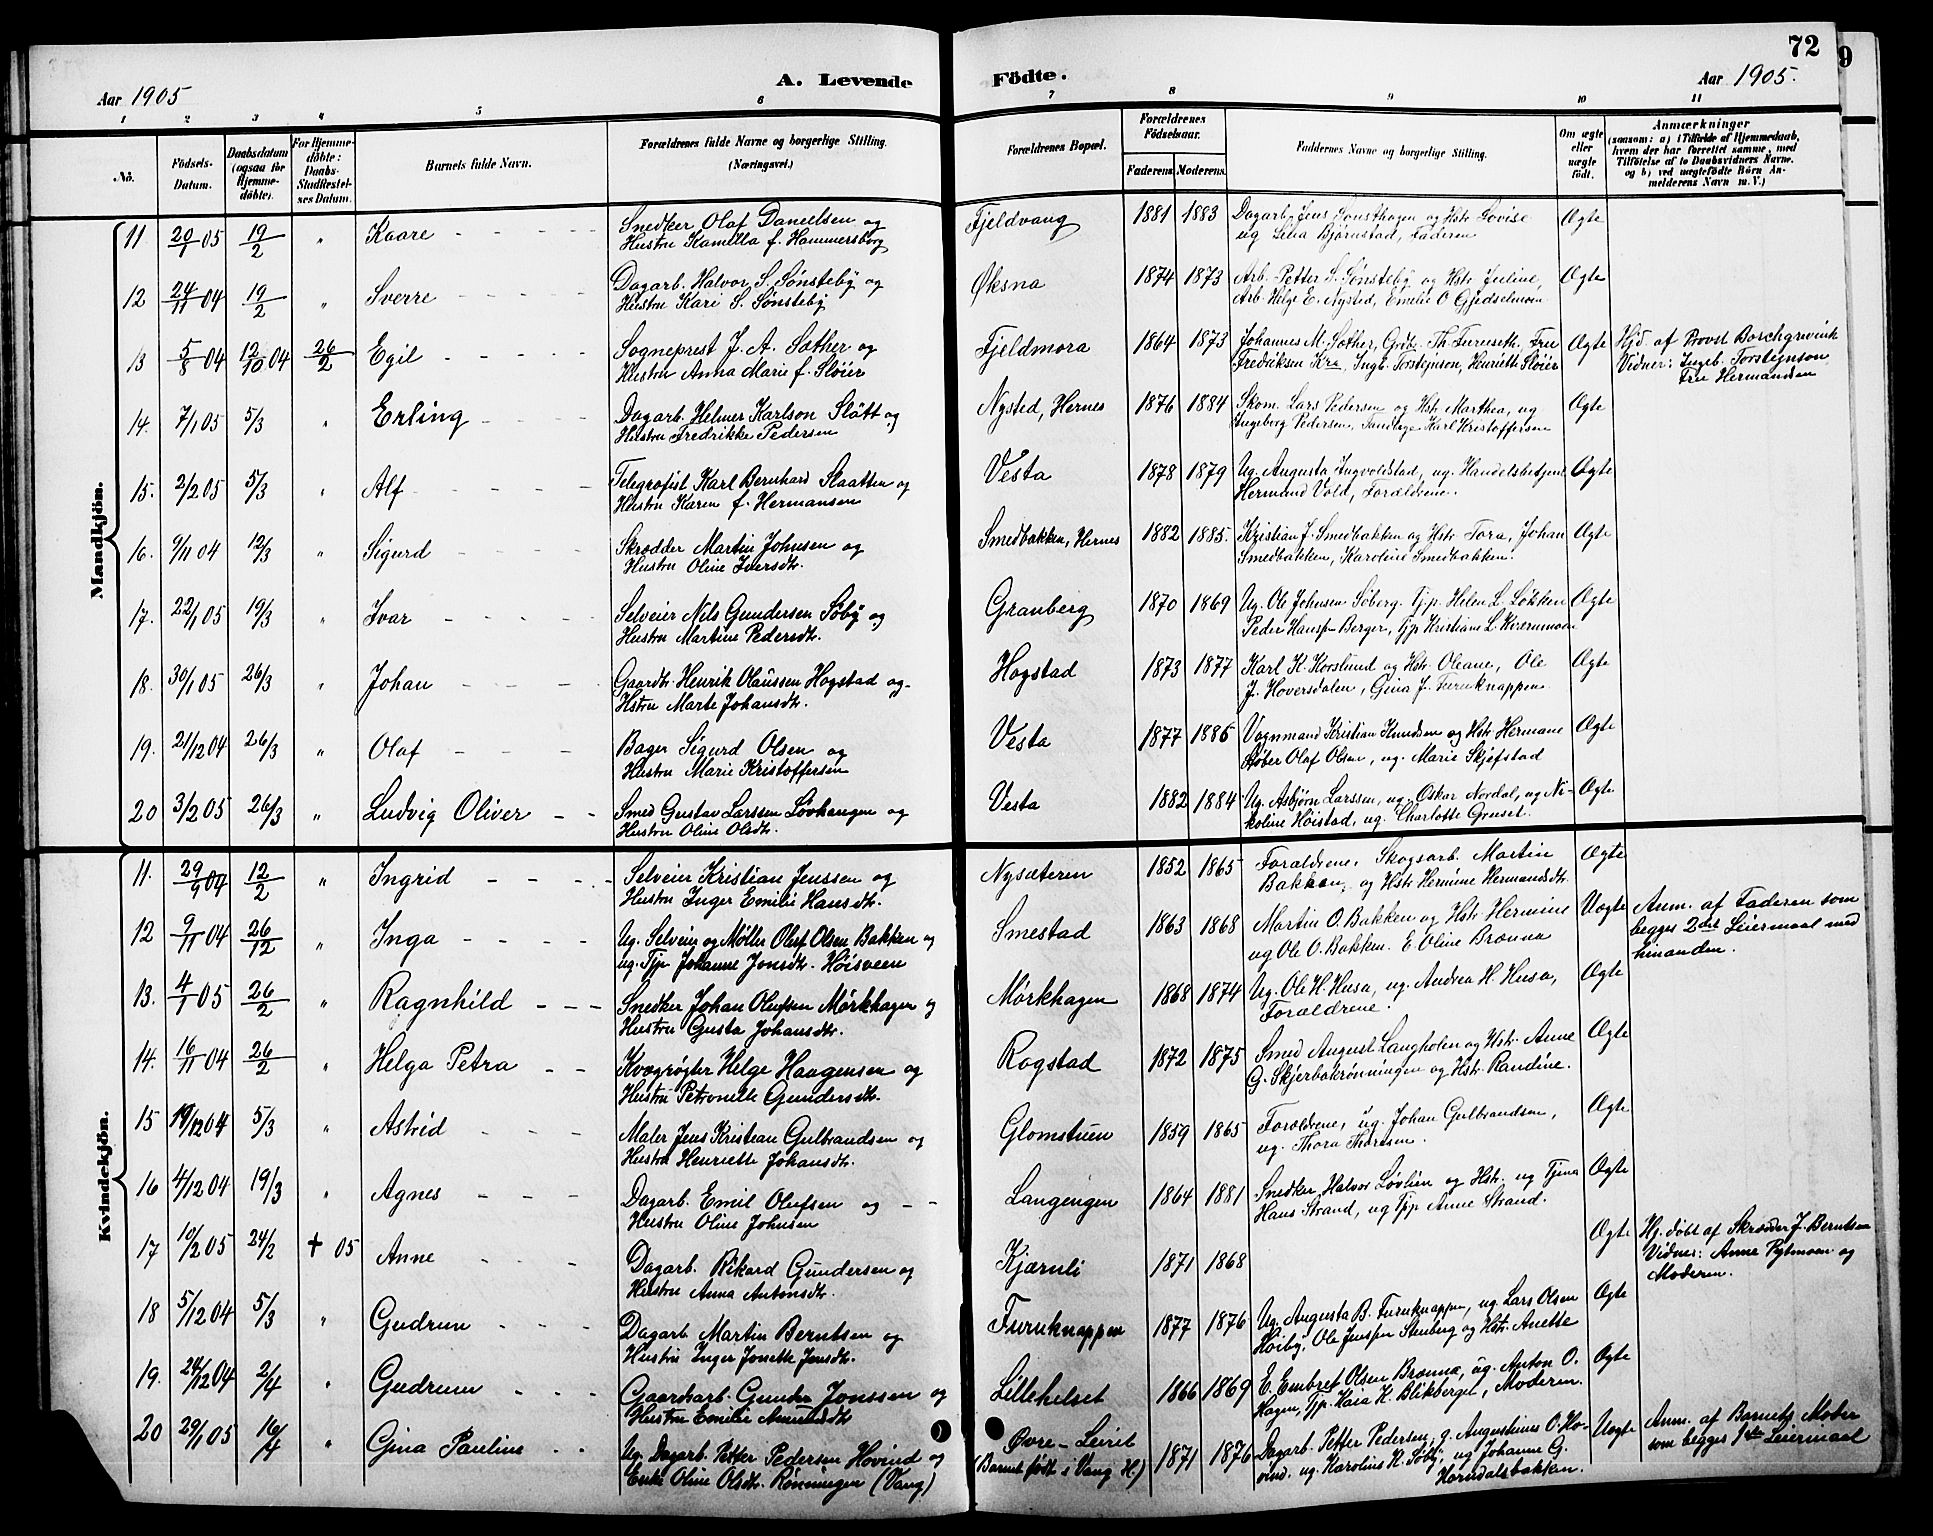 72
9
A. Levende Födte.
Aar 1905
Aar 1905.
1 2 3 4 5 6 7 8 9 10 11
No.
Födsels-Datum.
Daabsdatum (ogsaa för Hjemmedöbte).
For Hjemmedöbte: Daabs-Stadfæstelses Datum.
Barnets fulde Navn.
Forældrenes fulde Navne og borgerlige Stilling. (Næringsvei.)
Forældrenes Bopæl.
Forældrenes Födselsaar.
Faderens. Moderens.
Faddernes Navne og borgerlige Stilling.
Om ægte eller uægte födt.
Anmærkninger
(saasom: a) i Tilfælde af Hjemmedaab, hvem der har forrettet samme, med Tilföielse af to Daabsvidners Navne. og b) ved uægtefödte Börn Anmelderens Navn m. V.)
Mandkjön.
11 20/1 05 19/2 " Kaare Snedker Olaf Danielsen og Fjeldvang 1881 1883 Dagarb. Jens Sonsthagen og Hstr Lovise Ægte
Hustru Kamilla f. Hammersborg ug Lina Bjørnstad, Faderen
12 24/11 04 19/2 " Sverre Dagarb. Halvor S. Sønsteby og Øksna 1874 1873 Arb. Petter S. Sønsteby og Hstr Ægte
Hustru Kari S. Sønsteby Arb. Helge E. Nysted, Emilie O Gjedselmoen
13 5/8 04 12/10 04 26/2 Egil Sogneprest J. A. Sæther og Fjeldmora 1864 1873 Johannes M. Sæther, Th. Furuseth, Fru Ægte Hjd. af Provst Borchgrevink
Hustru Anna Marie f. Sløier Fredriksen Kra, Ingb. Torsteinson, Henriette Sløier Vidner: Ingeb. Torsteinson
Fru Hermansen
14. 7/1 05 5/3 " Erling Dagarb. Helmer Karlson Slått og Nysted, Hernes 1876 1884 Skom. Lars Pedersen og Hstr Marthea, ug Ægte
Hustru Fredrikke Pedersen Ingeborg Pedersen, Tandlæge Karl Kristoffersen
15. 2/2 05 5/3 " Alf Telegrafist Karl Bernhard Slaatten og Vesta 1878 1879 Ug. Augusta Ingvoldstad, ug. Handelsbetjent Ægte
Hustru Karen f. Hermansen Hermand Vold, Forældrene.
16. 9/11 04 12/3 " Sigurd Skrædder Martin Johnsen og Smedbakken, Hernes 1882 1885. Kristian J. Smedbakken og Hstr Tora, Johan Ægte
Hustru Oline Iversdtr. Smedbakken, Karoline Smedbakken.
17. 22/1 05 19/3 " Ivar Selveier Nils Gundersen Søby og Granberg 1870 1869 Ug. Ole Johnsen Søberg. Tjp. Helen L. Løkken Ægte
Hustru Martine Pedersdtr. Peder Hansen Berger, Tjp Kristiane L Kværnmoen
18. 30/1 05 26/3 " Johan Gaardbr. Henrik Olaussen Hogstad og Hogstad 1873 1877 Karl K. Korslund og Hstr Oleane, Ole Ægte
Hstru Marte Johansdtr. J. Hoversdalen, Gina J. Furuknappen
19. 21/12 04 26/3 " Olaf Bager Sigurd Olsen og Vesta 1877 1886 Vognmand Kristian Knudsen og Hstr Hermane Ægte
Hustru Marie Kristoffersen Støber Olaf Olsen, ug. Marie Skjefstad
20 3/2 05 26/3 " Ludvig Oliver Smed Gustav Larssen Løvhaugen og Vesta 1882 1884 Ug. Asbjørn Larssen, ug. Oskar Nordal, ug Ni- Ægte
Hustru Oline Olsdtr. koline Høistad, ug. Charlotte Gruset.
Kvindekjön.
11. 29/9 04 12/2 " Ingrid Selveier Kristian Jenssen og Nysæteren 1852 1865 Forældrene, Skogsarb. Martin Ægte
Hustru Inger Emilie Hansdtr. Bakken og Hstr Hermine Hermandsdtr
12 9/11 04 26/12 " Inga Ug. Selveier og Møller Oluf Olsen Bakken og Smestad 1863 1868 Martin O. Bakken og Hstr Hermine Uægte Anm. af Faderen som
ug. Tjp. Johanne Jonsdtr. Høisveen ug Ole O. Bakken. E. Oline Brænna begges 2det Leiermaal med
hinanden.
13. 4/1 05 26/2 " Ragnhild Snedker Johan Olufsen Mørkhagen og Mørkhagen 1868 1874 Ug. Ole H. Husa, ug. Andrea H. Husa, Ægte
Hustru Gusta Johansdtr. Forældrene.
14. 16/11 04 26/2 " Helga Petra Kvægrøgter Helge Haagensen og Rogstad 1872 1875 Smed August Langholen og Hstr. Anne Ægte
Hustru Petronelle Gundersdtr. G. Skjærbækrønningen og Hstr. Randine.
15 19/12 04 5/3 " Astrid Maler Jens Kristian Gulbrandsen og Glomstuen 1859 1865 Forældrene, ug. Johan Gulbrandsen, Ægte
Hustru Henriette Johansdtr. ug. Thora Thoresen.
16 4/12 04 19/3 " Agnes Dagarb. Emil Olufsen og Langengen 1864 1881 Snedker Halvor Løvlien og Hstr. ug Tjina Ægte
Hustru Oline Johnsen Hans Strand, ug Tjp Anne Strand.
17 10/2 05 24/2 + 05 Anne Dagarb. Rikard Gundersen og Kjærnli 1871 1868 Ægte Hj. døbt af Skrædder J. Berntsen
Hustru Anna Antonsdtr. Vidner: Anne Pytmoen og
Moderen.
18 5/12 04 5/3 " Gudrun Dagarb. Martin Berntsen og Furuknappen 1877 1876 Ug. Augusta B. Furuknappen, ug. Lars Olsen Ægte
Hustru Inger Jonette Jensdtr. Høiby, Ole Jenssen Stenberg og Hstr. Anette
19. 24/12 04 2/4 " Gudrun Gaardsarb. Gunder Jonssen og Lillehelset 1866 1869 E. Embret Olsen Brænna, ug. Anton O. Ægte
Hustru Emilie Amundsdtr Hagen, Tjp. Kaia K. Blikberget, Moderen.
20 29/1 05 16/4 " Gina Pauline Ug. Dagarb. Petter Pedersen Hovind og Øvre-Leiret 1871 1876 Dagarb. Petter Pedersen, g. Augustinus O. Ho- Uægte Anm. af Barnets Moder
Enke Oline Olsdtr. Rønningen (Vang) (Barnet født i Vang H.) vind, ug. Karolius K. Søby, ug Johanne G. som begges 1ste Leiermaal
Horndalsbakken.